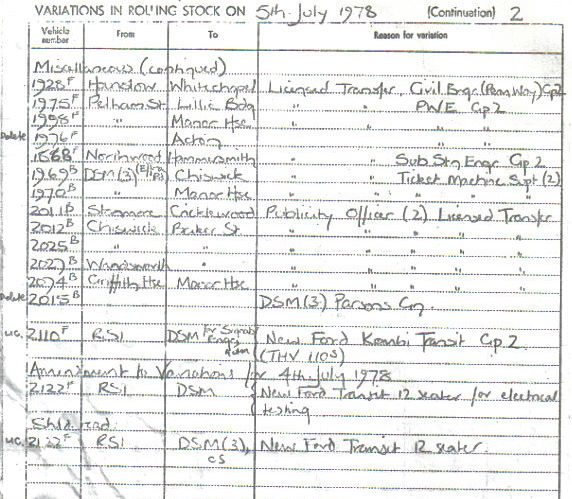 VARIATIONS IN ROLLING STOCK ON 5th July 1978 (Continuation) 2
Vehicle number From To Reason for variation
Miscellaneous (continued)
1928F Hounslow Whitechapel Licensed Transfer, Civil Engr (Perm Way) Gp2
1975F Pelham St Lillie Bdg " " PWE Gp 2
1998F " Manor Hse " " "
Delete 1976F Acton " "
1888F Northwood Hammersmith " " Sub Stn Engr Gp 2
1969B DSM(3) Chiswick " " Ticket Machine Supt (2)
1970B " Manor Hse " " " "
2011B Stanmore Cricklewood Publicity Officer (2) Licensed Transfer
2012B Chiswick Baker St " " " "
2025B " " " " " "
2027B Wandsworth " " " " "
2074B Griffith Hse Manor Hse " " " "
Delete 2015B DSM(3) Parsons Gn.
u.c. 2110F RSI DSM for Signal Engr New Ford Kombi Transit Gp 2
(THV 110S)
Amendment to Variations for 4th July 1978
2122F RSI DSM New Ford Transit 12 seater for electrical
testing
Shld read
u.c. 2122F RSI DSM(3), New Ford Transit 12 seater.
cs